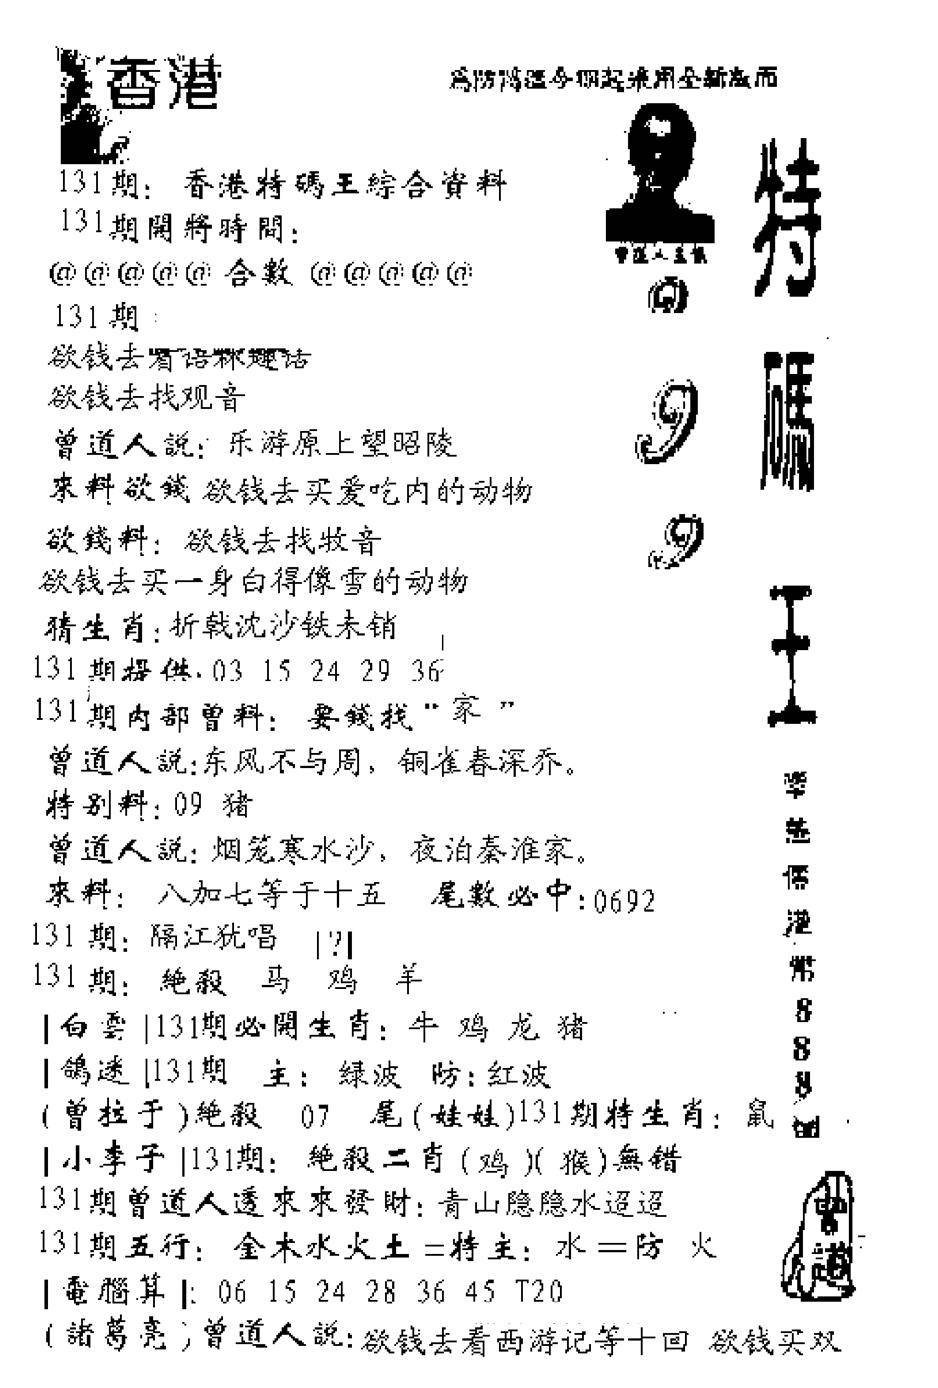 香港
131期: 香港特碼王綜合資料
131期開將時間:
@@@@@ 合數 @@@@@
131期:
欲钱去看
欲钱去找观音
曾道人説: 乐游原上望昭陵
來料欲錢 欲钱去买爱吃内的动物
欲錢料: 欲钱去找牧音
欲钱去买一身白得像雪的动物
猜生肖:折戟沈沙铁未销
131期提供.03 15 24 29 36
131期内部曾料: 要錢找“家”
曾道人説:东风不与周，铜雀春深乔。
特别料:09 猪
曾道人説:烟笼寒水沙，夜泊秦淮家。
來料: 八加七等于十五 尾數必中:0692
131期: 隔江犹唱 |?|
131期: 絶殺 马 鸡 羊
|白雲|131期必開生肖: 牛 鸡 龙 猪
|鴿迷|131期 主: 绿波 防:红波
(曾拉于)絶殺 07 尾(娃娃)131期特生肖: 鼠
|小李子|131期: 絶殺二肖(鸡)(猴)無錯
131期曾道人透來來發財:青山隐隐水迢迢
131期五行: 金木水火土=特主: 水=防 火
|電腦算|: 06 15 24 28 36 45 T20
(諸葛亮)曾道人説:欲钱去看西游记等十回 欲钱买双
9
9
特碼王
港幣888
曾道